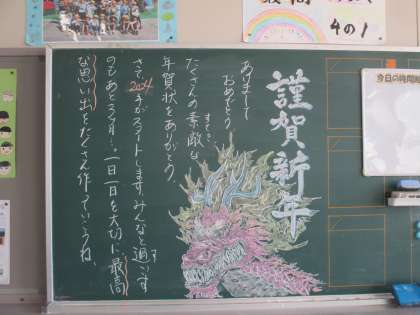 最高
4の1
今日の時間割
謹賀新年
あけまして
おめでとう
たくさんの素敵な
すてき
年賀状をありがとう。
さて、2024年がスタートします。みんなと過ごす
す
のもあと3ヶ月…。一日一日を大切に、最高
な思い出をたくさん作っていこうね。